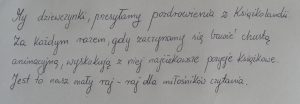 My dziewczynki, przesyłamy pozdrowienia z Książkolandii
Za każdym razem, gdy zaczynamy się bawić chustą
animacyjną, wyskakują z niej najciekawsze pozycje książkowe.
Jest to nasz mały raj - raj dla miłośników czytania.